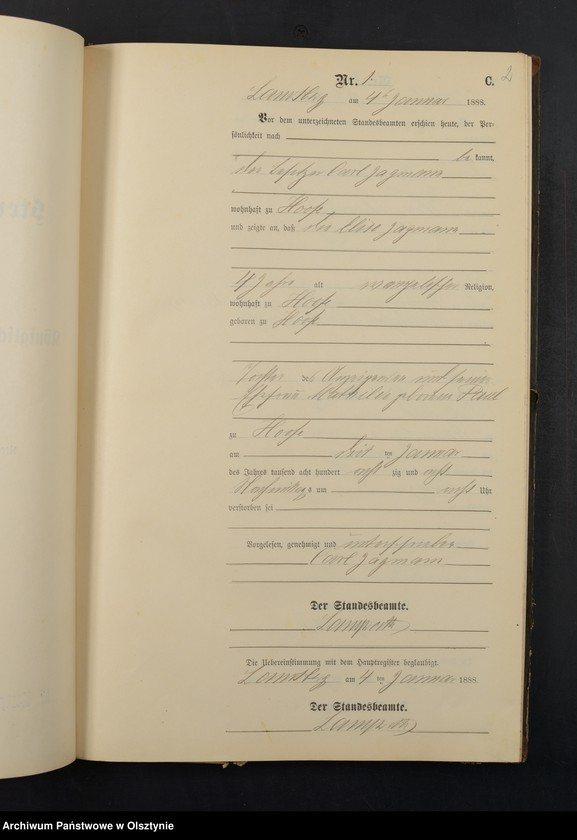 Nr. 1. C. 2
Landsberg am 4ten Januar 1888.
Vor dem unterzeichneten Standesbeamten erschien heute, der Per-
sönlichkeit nach
be kannt,
der Besitzer Carl Jagmann
wohnhaft zu Hoofe
und zeigte an, daß die Elise Jagmann
4 Jahre alt evangelischer Religion,
wohnhaft zu Hoofe
geboren zu Hoofe
Tochter des Anzeigenden und seiner
Ehefrau geborenen
zu Hoofe
am drei ten Januar
des Jahres tausend acht hundert acht zig und acht
Nachmittags um acht Uhr
verstorben sei
Vorgelesen, genehmigt und unterschrieben
Carl Jagmann
Der Standesbeamte.
Die Uebereinstimmung mit dem Hauptregister beglaubigt.
Landsberg am 4 ten Januar 1888.
Der Standesbeamte.
Archiwum Państwowe w Olsztynie